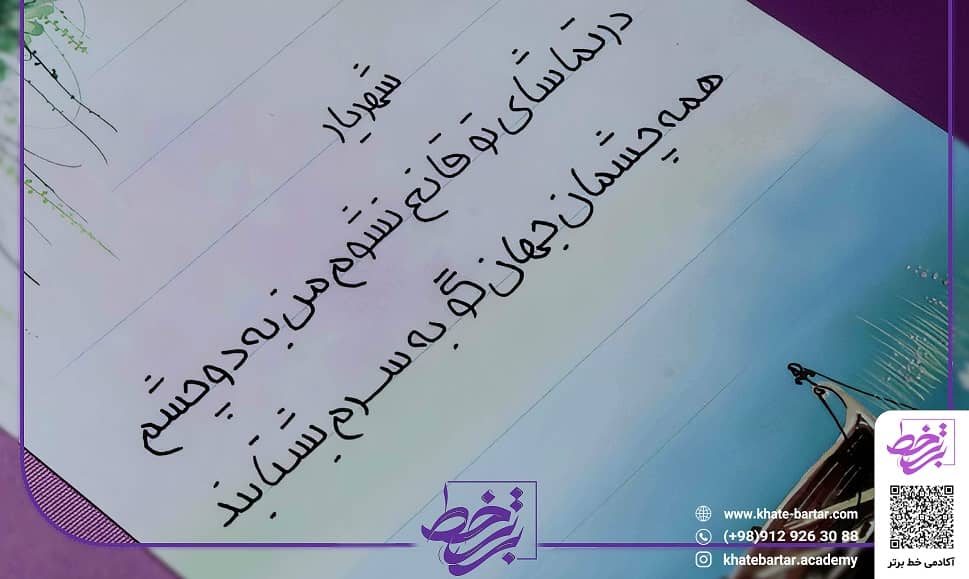 شهریار
در تماشای تو قانع نشوم من به دو چشم
همه چشمان جهان گو به سرم بشتابند
خط برتر
www.khate-bartar.com
(+98)912 926 30 88
khatebartar.academy
خط برتر
آکادمی خط برتر